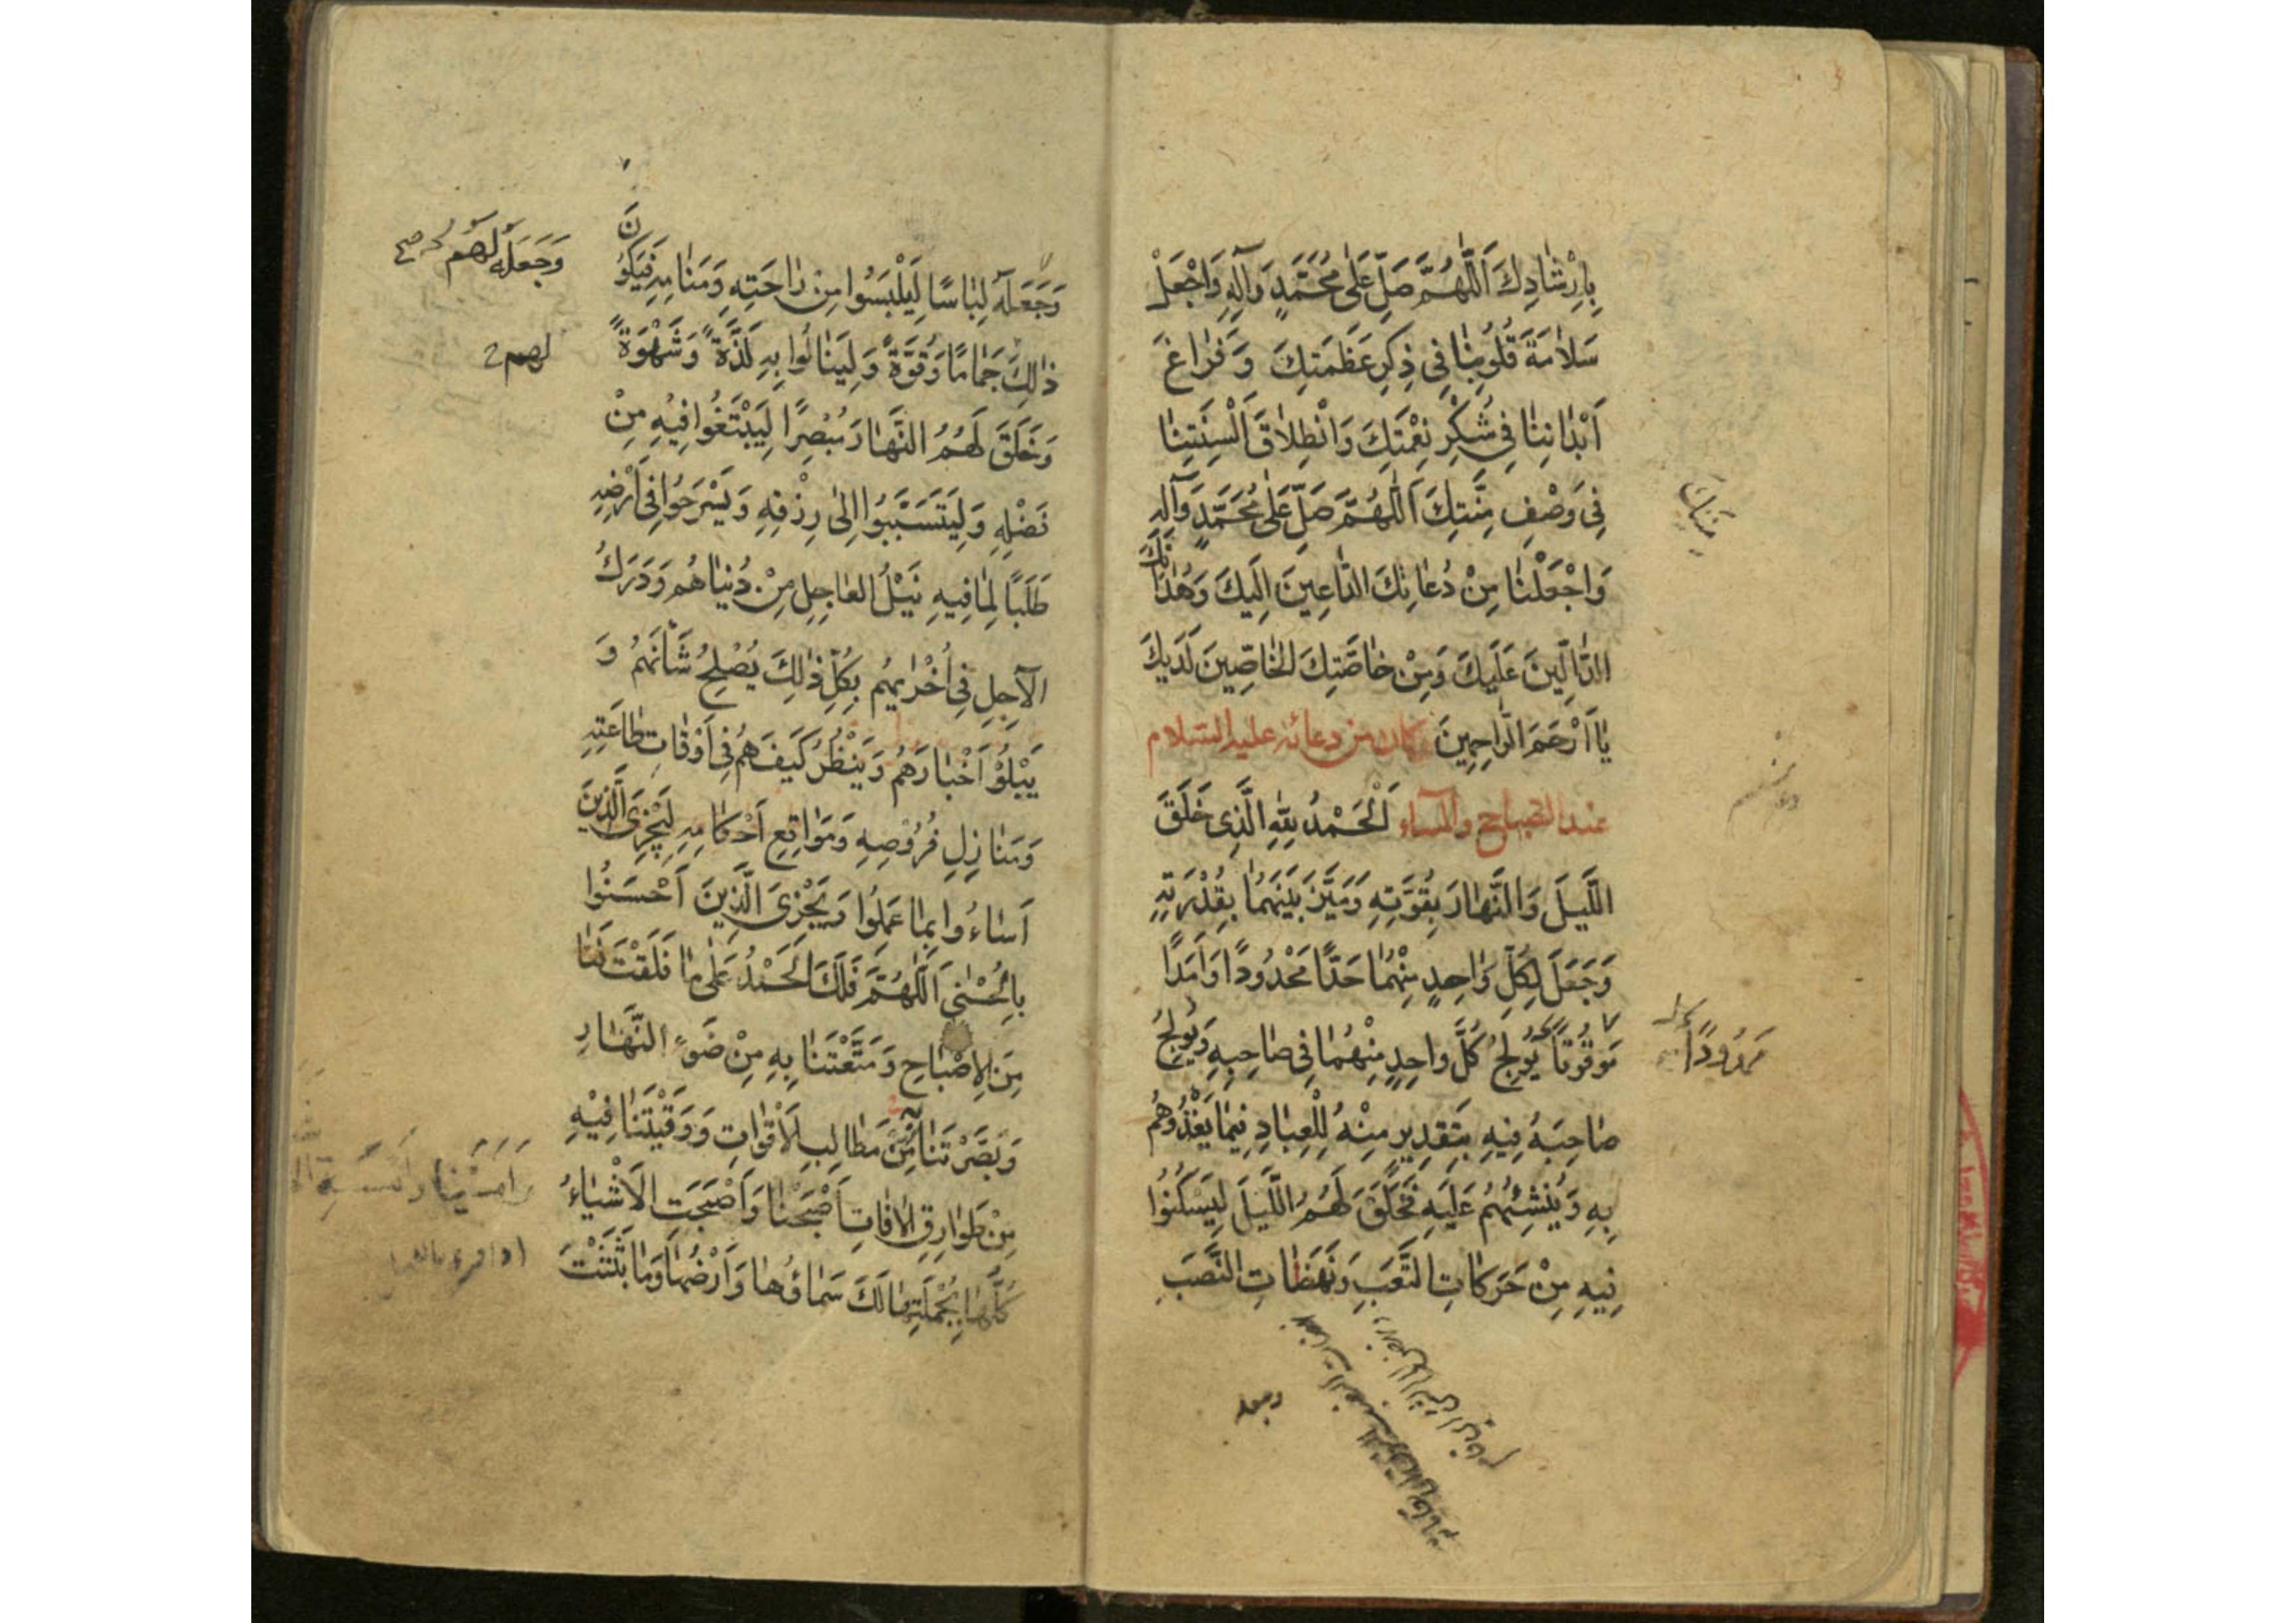 بِاِرْشٰادِكَ اَللّٰهُمَّ صَلِّ عَلٰى مُحَمَّدٍ وَآلِهِ وَاجْعَلْ
سَلاٰمَةَ قُلُوبِنٰا فِى ذِكْرِ عَظَمَتِكَ وَ فَرٰاغَ
اَبْدٰانِنٰا فِى شُكْرِ نِعْمَتِكَ وَانْطِلاٰقَ اَلْسِنَتِنٰا
فِى وَصْفِ مِنَّتِكَ اَللّٰهُمَّ صَلِّ عَلٰى مُحَمَّدٍ وَآلِهِ
وَاجْعَلْنٰا مِنْ دُعٰاتِكَ الدّٰاعِينَ اِلَيكَ وَهُدٰاتِكَ
الدّٰالِّينَ عَلَيكَ وَمِنْ خٰاصَّتِكَ الخٰاصِّينَ لَدَيكَ
يٰا اَرْحَمَ الرّٰاحِمِينَ كان من دعائه عليه السّلام
عند الصّباح والمساء اَلْحَمْدُ لِلّٰهِ الَّذِى خَلَقَ
اللَّيلَ وَالنَّهٰارَ بِقُوَّتِهِ وَمَيَّزَ بَيْنَهُمٰا بِقُدْرَتِهِ
وَجَعَلَ لِكُلِّ وٰاحِدٍ مِنْهُمٰا حَدًّا مَحْدُودًا وَاَمَدًا
مَوْقُوتًا يُولِجُ كُلَّ واحِدٍ مِنْهُمٰا فِى صٰاحِبِهِ وَيُولِجُ
صٰاحِبَهُ فِيهِ بِتَقدِيرٍ مِنْهُ لِلْعِبٰادِ فِيمٰا يَغْذُوهُم
بِهِ وَيُنْشِئُهُمْ عَلَيهِ فَخَلَقَ لَهُمُ اللَّيلَ لِيَسْكُنُوا
فِيهِ مِنْ حَرَكٰاتِ التَّعَبِ وَنَهَضٰاتِ النَّصَبِ
منتك
مَمْدُودًا
وجعله
وَجَعَلَهُ لِبٰاسًا لِيَلْبَسُوا مِنْ رٰاحَتِهِ وَمَنٰامِهِ فَيَكُونَ
ذٰلِكَ جَمٰامًا وَقُوَّةً وَلِيَنٰالُوا بِهِ لَذَّةً وَشَهْوَةً
وَخَلَقَ لَهُمُ النَّهٰارَ مُبْصِرًا لِيَبْتَغُوا فِيهِ مِنْ
فَضْلِهِ وَلِيَتَسَبَّبُوا اِلىٰ رِزْقِهِ وَيَسْرَحُوا فِى اَرْضِهِ
طَلَبًا لِمٰا فِيهِ نَيْلُ العٰاجِلِ مِنْ دُنيٰاهُم وَدَرَكُ
الآجِلِ فِى اُخْرٰيهُم بِكُلِّ ذٰلِكَ يُصْلِحُ شَأنَهُمْ وَ
يَبْلُوْ اَخْبٰارَهُم وَيَنْظُرُ كَيفَ هُم فِى اَوْقٰاتِ طٰاعَتِهِ
وَمَنٰازِلِ فُرُوْضِهِ وَمَوٰاقِعِ اَحْكٰامِهِ لِيَجْزِىَ الَّذِينَ
اَسٰاءُوا بِمٰا عَمِلُوا وَيَجْزِىَ الَّذِينَ اَحْسَنُوا
بِالْحُسْنىٰ اَللّٰهُمَّ فَلَكَ الحَمْدُ عَلٰى مٰا فَلَقْتَ لَنٰا
مِنَ الاِصْبٰاحِ وَمَتَّعْتَنٰا بِهِ مِنْ ضَوْءِ النَّهٰارِ
وَبَصَّرْتَنٰا مِنْ مَطٰالِبِ الاَقْوٰاتِ وَوَقَيْتَنٰا فِيْهِ
مِنْ طَوٰارِقِ الاٰفٰاتِ اَصْبَحْنٰا وَاَصْبَحَتِ الاَشْيٰاءُ
كُلُّهٰا بِجُمْلَتِهٰا لَكَ سَمٰاؤُهٰا وَاَرْضُهٰا وَمٰا بَثَثْتَ
وَجَعَلَهُ لَهُم
لهم